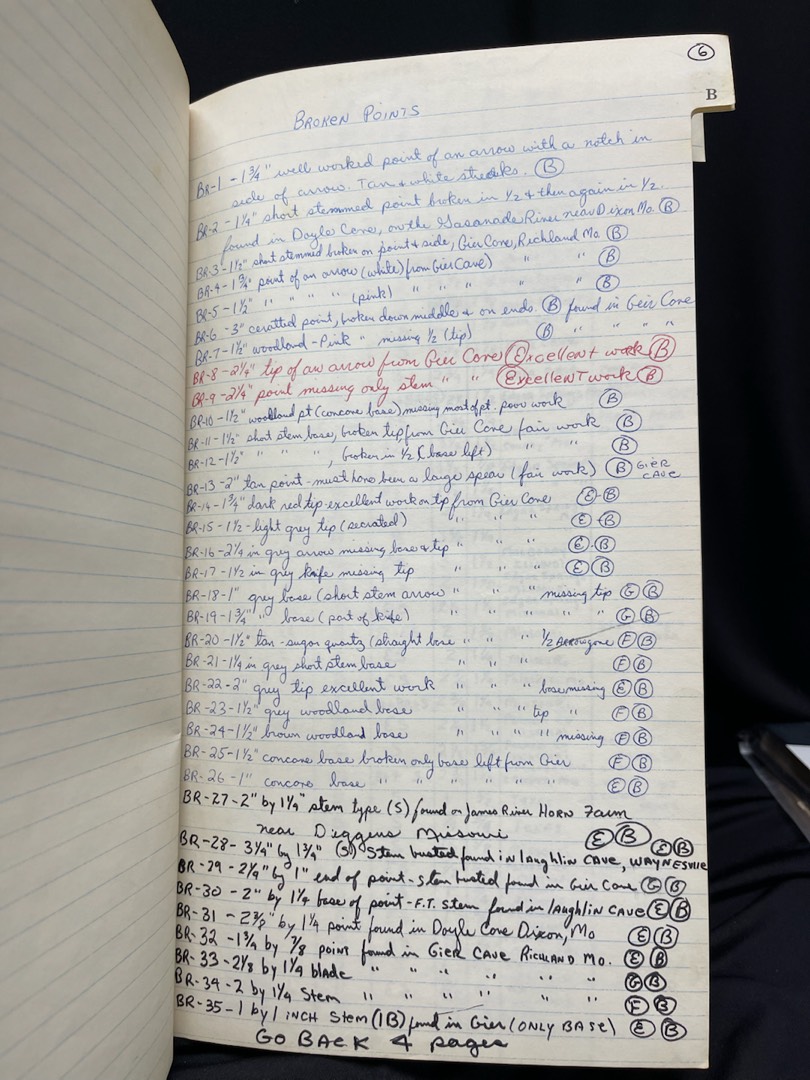 6
B
BROKEN POINTS
BR-1 - 1 3/4" well worked point of an arrow with a notch in
side of arrow. Tan & white streaks. (B)
BR-2 - 1 1/4" short stemmed point broken in 1/2 & then again in 1/2.
found in Doyle Cave, on the Gasanade River near Dixon Mo. (B)
BR-3 - 1 1/2" short stemmed broken on point & side, Gier Cave, Richland Mo (B)
BR-4 - 1 3/4" point of an arrow (white) from Gier Cave) " " (B)
BR-5 - 1 1/2" " " " " (pink) " " " " " (B)
BR-6 - 3" ceratted point, broken down middle & on ends. (B) found in Geir Cave
BR-7 - 1 1/2" woodland - Pink " missing 1/2 (tip) (B) " " " "
BR-8 - 2 1/4" tip of an arrow from Gier Cave (E)xcellent work (B)
BR-9 - 2 1/4" point missing only stem " " (E)xcellenT work (B)
BR-10 - 1 1/2" woodland pt (concave base) missing most of pt. poor work (B)
BR-11 - 1 1/2" short stem base, broken tip from Gier Cave fair work (B)
BR-12 - 1 1/2" " " ", broken in 1/2 (base left) " " (B)
BR-13 - 2" tan point - must have been a large spear (fair work) (B) GIER CAVE
BR-14 - 1 3/4" dark red tip - excellent work on tip from Gier Cave (E)-(B)
BR-15 - 1 1/2 - light grey tip (secrated) " " " (E)-(B)
BR-16 - 2 1/4 in grey arrow missing base & tip " " " (E)-(B)
BR-17 - 1 1/2 in grey knife missing tip " " " (E)(B)
BR-18 - 1" grey base (short stem arrow " " " missing tip (G)(B)
BR-19 - 1 3/4" " base (part of knife) " " " " " (G)(B)
BR-20 - 1 1/2" tan - sugar quartz (straight base " " " 1/2 Arrow gone (F)(B)
BR-21 - 1 1/4 in grey short stem base " " " (F)(B)
BR-22 - 2" grey tip excellent work " " " base missing (E)(B)
BR-23 - 1 1/2" grey woodland base " " " tip " (F)(B)
BR-24 - 1 1/2" brown woodland base " " " " missing (F)(B)
BR-25 - 1 1/2" concave base broken only base left from Gier (F)(B)
BR-26 - 1" concave base " " " " " " (E)(B)
BR-27 - 2" by 1 1/4" stem type (S) found on James River HORN Farm
near Diggens Missouri (E)(B)
BR-28 - 3 1/4" by 1 3/4" (S) Stem busted found in laughlin CAVE, WAYNESVILLE (E)(B)
BR-29 - 2 1/4" by 1" end of point - stem busted found in Gier Cave (G)(B)
BR-30 - 2" by 1 1/4 base of point - F.T. stem found in laughlin CAVE (E)(B)
BR-31 - 2 3/8" by 1 1/4 point found in Doyle Cave Dixon, Mo (E)(B)
BR-32 - 1 3/4 by 7/8 point found in GIER CAVE RICHLAND MO. (E)(B)
BR-33 - 2 1/8 by 1 1/4 blade " " " " " (G)(B)
BR-34 - 2 by 1 1/4 Stem " " " " " " (F)(B)
BR-35 - 1 by 1 INCH Stem (1B) found in Gier (ONLY BASE) (E)(B)
GO BACK 4 pages